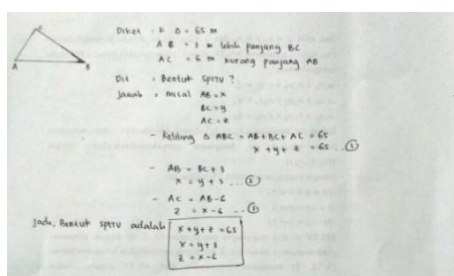 C
A
B
Diket : K Δ = 65 m
AB = 3 m lebih panjang BC
AC = 6 m kurang panjang AB
Dit : Bentuk SPLTV ?
Jawab : misal AB = x
BC = y
AC = z
- Keliling Δ ABC = AB + BC + AC = 65
x + y + z = 65 ... ①
- AB = BC + 3
x = y + 3 ... ②
- AC = AB - 6
z = x - 6 ... ③
Jadi, Bentuk SPLTV adalah
x + y + z = 65
x = y + 3
z = x - 6